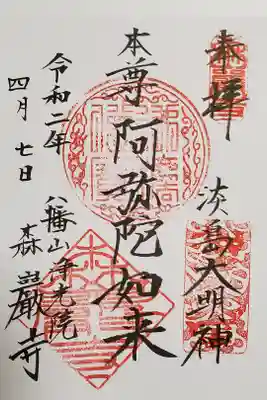 奉拝
淡島大明神
本尊 阿弥陀如来
令和二年
四月七日
八幡山浄光院
森巖寺